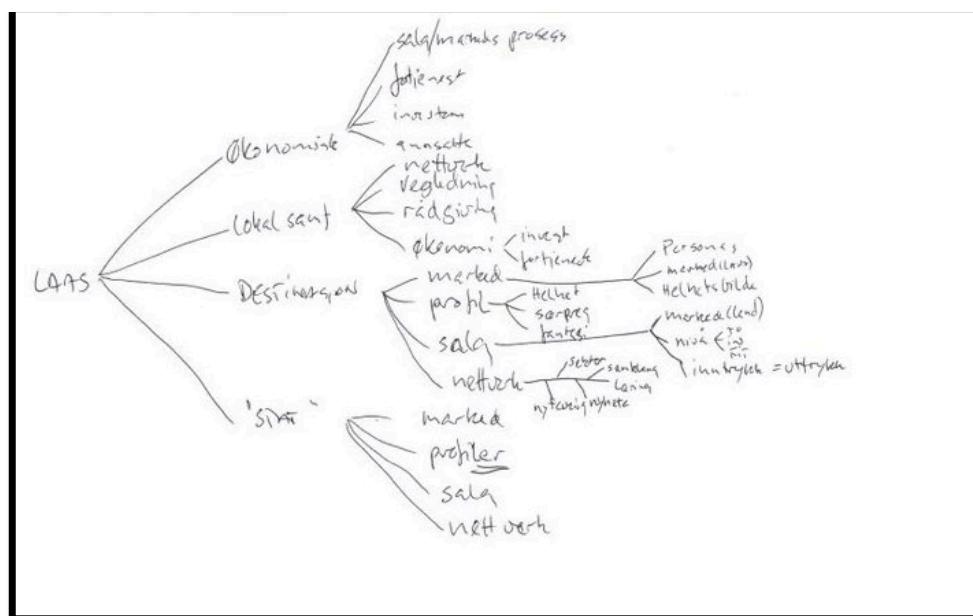 LAAS
Økonomisk
salg/markeds prosess
fotjenest
ansatte
Lokal samf
nettverk
Vegledning
rådgiving
Økonomi
invest
fortjeneste
DESTINASJON
marked
Personas
marked (Laas)
Helhetsbilde
profil
Helhet
særpreg
fantasi
salg
marked (land)
nivå
inntrykk = uttrykk
nettverk
samhang
Læring
"STAT"
marked
profiler
salg
nettverk